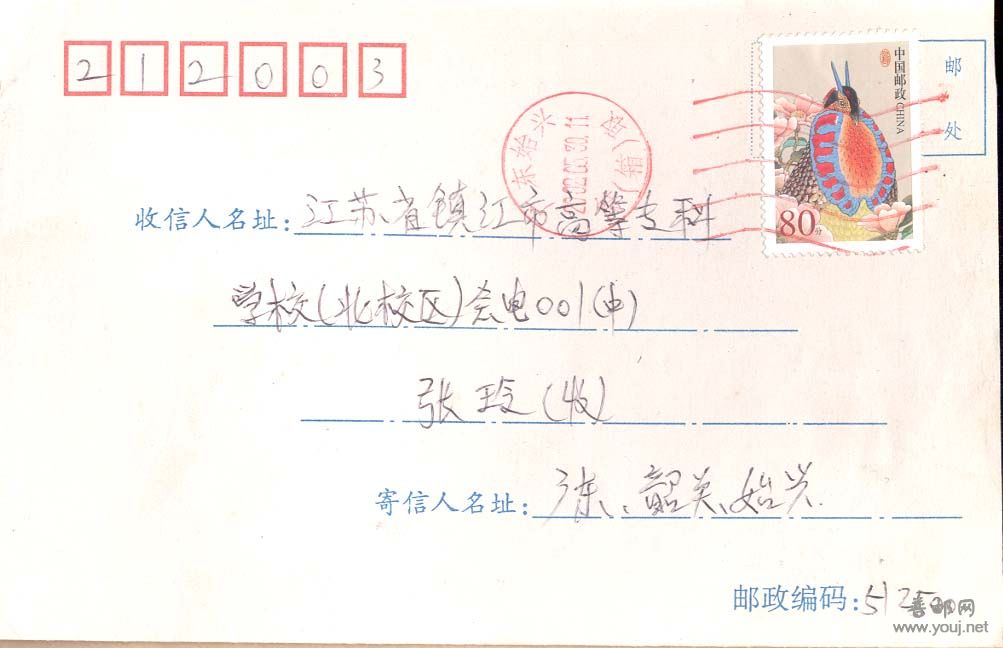 212003
中国邮政 CHINA
80分
邮
处
东始兴
2002.05.30.11
收信人名址:江苏省镇江市高等专科
学校(北校区)会电001(中)
张玲(收)
寄信人名址:广东、韶关、始兴.
邮政编码:5125
普邮网
www.youj.net